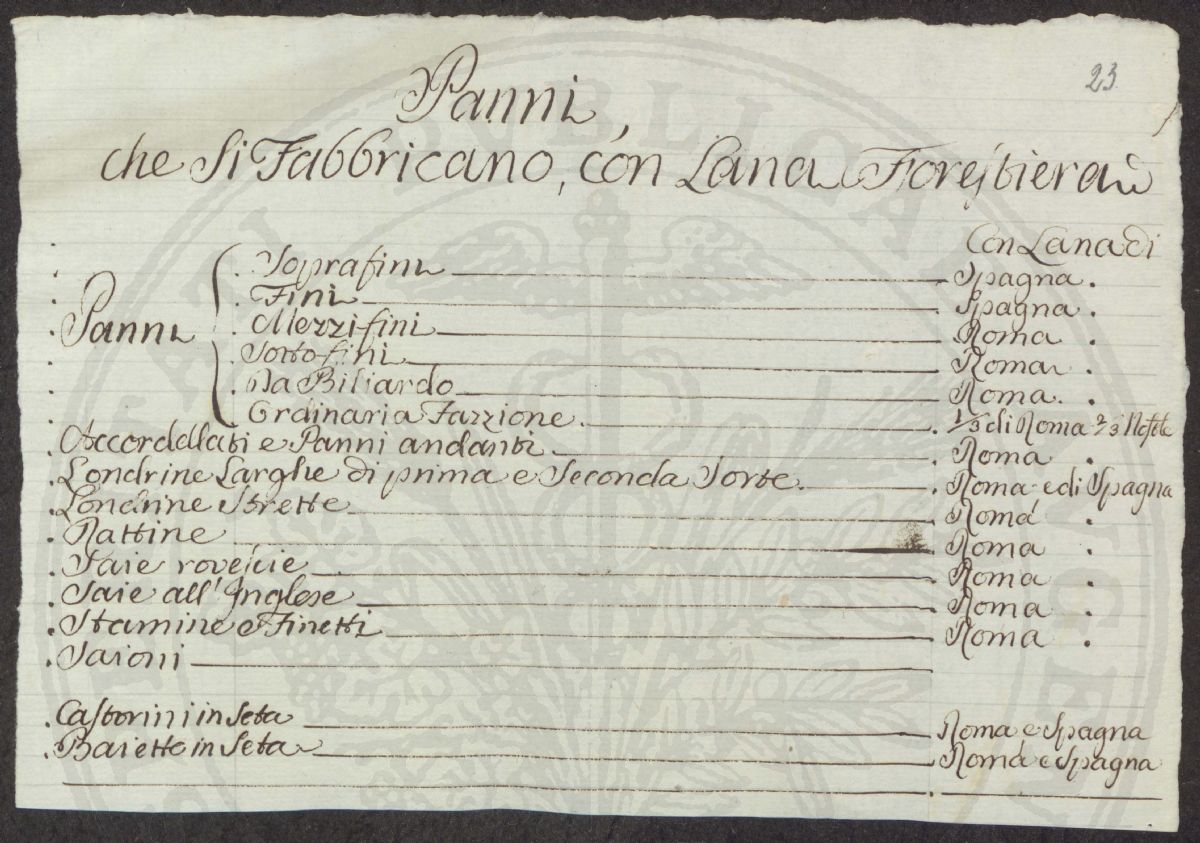 23
Panni,
che Si Fabbricano, con Lana Forestiera
Con Lana di
Panni
. Soprafini Spagna .
. Fini Spagna .
. Mezzi fini Roma .
. Sotto-fini Roma .
. Da Biliardo Roma .
. Ordinaria Fazzione . 1/3 di Roma 2/3
. Accordellati e Panni andanti . Roma .
. Londrine Larghe di prima e Seconda Sorte . Roma e di Spagna
. Londrine Strette . Roma .
. Rattine . Roma .
. Saie rovescie . Roma .
. Saie all'Inglese . Roma .
. Stamine e Finetti . Roma .
. Saioni
. Castorini in Seta Roma e Spagna
. Baietto in Seta . Roma e Spagna